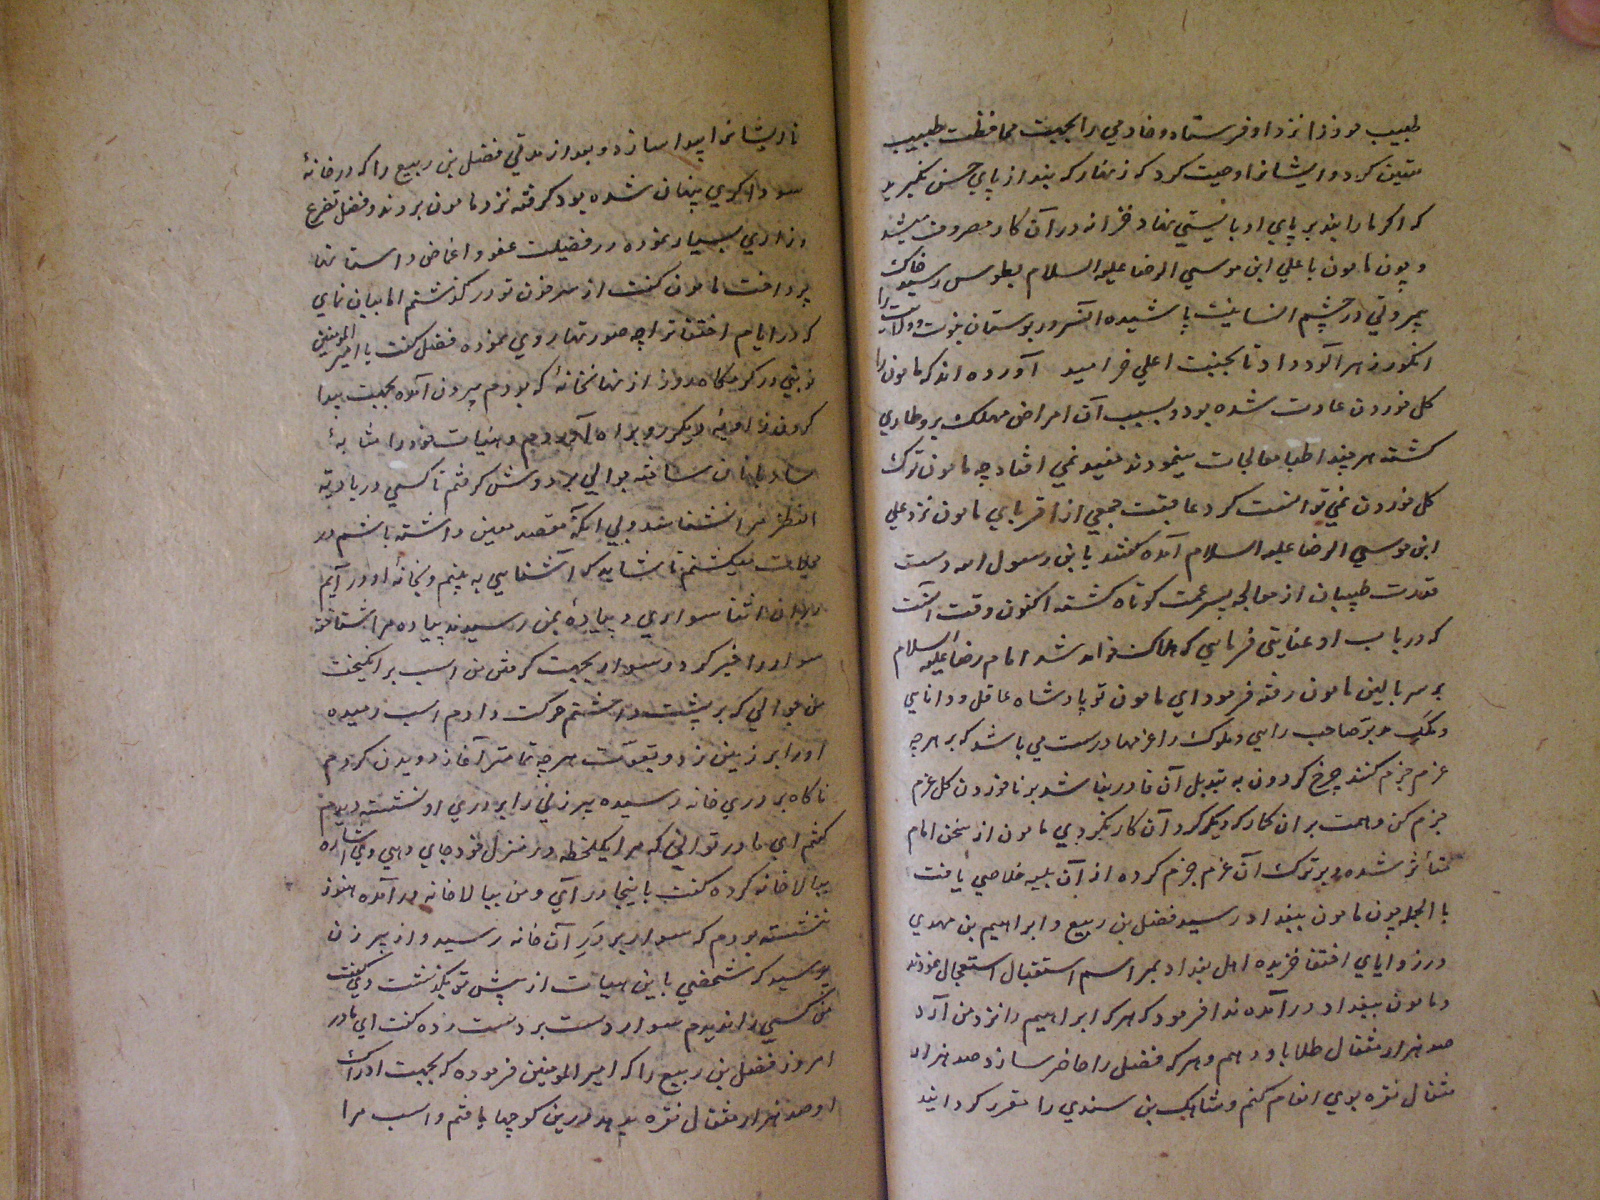 طبیب موز را نزد او فرستاد و خادمی را بجهت محافظت طبیب
متعین کرد و ایشانرا وصیت کرد که زنهار که بند از پای حسن نگیرید
که اگر ما را بند بر پای او بایستی نهاد خزانه در آن کار مصروف میشد
و چون مامون با علی ابن موسی الرضا علیه السلام بطوس رسید خاک
بیمروتی در چشم انسانیت پاشیده آنسرور بوستان نبوت و ولایت را
انکور زهرآلود داد تا بجنت اعلی خرامید آورده اند که مامون را
کل خوردن عادت شده بود و بسبب آن امراض مهلک بر وطاری
کشته هر چند اطبا معالجات مینمودند مفید نمی افتاد چه مامون ترک
کل خوردن نمی توانست کرد عاقبت جمعی از اقربای مامون نزد علی
ابن موسی الرضا علیه السلام آمده گفتند یا بن رسول الله دست
قدرت طبیبان از معالجه بسرعت کوتاه کشته اکنون وقت آنست
که در باب او عنایتی فرمایی که هلاک خواهد شد امام رضا علیه السلام
بر سر بالین مامون رفته فرمود ای مامون تو پادشاه عاقل و دانایی
و ملک مدبر صاحب رایی و ملوک را عزمها درست می باشد که بر هرچه
عزم جزم کنند چرخ کردون به تبدیل آن قادر نباشد بر ناخوردن کل عزم
جزم کن و همت بر ان کمار که دیکر کرد آن کار نکردی مامون از سخن امام
متأثر شده و بر ترک آن عزم جزم کرده از آن بلیه خلاصی یافت
با الجمله چون مامون ببغداد رسید فضل بن ربیع و ابراهیم بن مهدی
در زوایای اختفا خزیده اهل بغداد بمراسم استقبال استعجال نمودند
و مامون ببغداد در آمده ندا فرمود که هرکه ابراهیم را نزد من آرد
صد هزار مثقال طلا باو دهم و هر که فضل را حاضر سازد صد هزار
مثقال نقره بوی انعام کنم و شاهک بن سندی را مقرر کردانید
تا ایشانرا پیدا سازد و بعد از مدتی فضل بن ربیع را که در خانهٔ
سوداگری پنهان شده بود کرفته نزد مامون بردند و فضل تضرع
و زاری بسیار نموده در فضیلت عفو و اغماض داستانها
پرداخت مامون گفت از سر خون تو در کذشتم اما بیان نمای
که در ایام اختفا ترا چه صورتها روی نموده فضل گفت یا امیر المومنین
نوبتی در کرمکاه روز از نهانخانهٔ که بودم بیرون آمده بجهت پیدا
کردن خانهٔ دیکر رو براه آوردم و هیات خود را مشابهٔ
ساخته جوالی بر دوش کرفتم تا کسی در بادیه
النظر مرا نشناسد و بی آنکه مقصد معین داشته باشم در
محلات میکشتم تا شاید که آشنایی به بینم و بخانهٔ او در آیم
در ان اثنا سواری و پیادهٔ بمن رسیدند پیاده مرا شناخته
سوار را خبر کرد و سوار بجهت کرفتن من اسب بر انکیخت
من جوالی که بر پشت داشتم حرکت دادم اسب رمیده
او را بر زمین زد و بقوت هر چه تمامتر آغاز دویدن کردم
ناکاه بر دری خانه رسیده پیر زنی را بر دری او نشسته دیدم
گفتم ای مادر توانی که مرا یکلحظه در منزل خود جای دهی وی اشاره
ببالاخانه کرده گفت باینجا در آی و من ببالاخانه در آمده هنوز
ننشسته بودم که سوار بر در آن خانه رسید و از پیر زن
پرسید که شخصی باین هیات از پیش تو بکذشت وی گفت
من کسی را ندیدم سوار دست بر دست زده گفت ای مادر
امروز فضل بن ربیع را که امیر المومنین فرموده که بجهت ادراک
او صد هزار مثقال نقره بدهد درین کوچها یافتم و اسب مرا